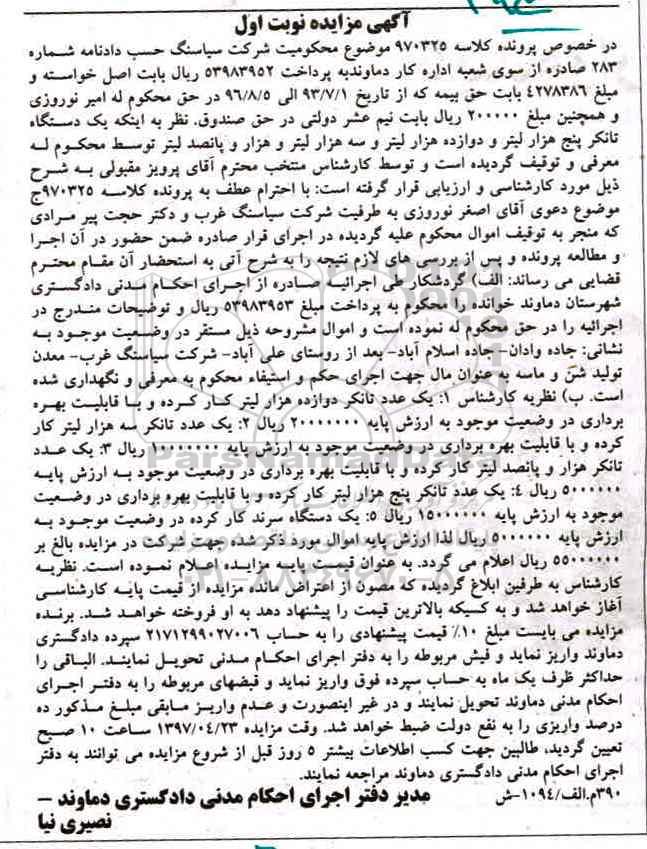 آگهی مزایده نوبت اول
در خصوص پرونده کلاسه ۹۷۰۳۲۵ موضوع محکومیت شرکت سیاسنگ حسب دادنامه شماره
۲۸۳ صادره از سوی شعبه اداره کار دماوندبه پرداخت ۵۳۹۸۳۹۵۲ ریال بابت اصل خواسته و
مبلغ ۴۲۷۸۳۸۶ بابت حق بیمه که از تاریخ ۹۳/۷/۱ الی ۹۶/۸/۵ در حق محکوم له امیر نوروزی
و همچنین مبلغ ۲۰۰۰۰۰ ریال بابت نیم عشر دولتی در حق صندوق. نظر به اینکه یک دستگاه
تانکر پنج هزار لیتر و دوازده هزار لیتر و سه هزار لیتر و هزار و پانصد لیتر توسط محکوم له
معرفی و توقیف گردیده است و توسط کارشناس منتخب محترم آقای پرویز مقبولی به شرح
ذیل مورد کارشناسی و ارزیابی قرار گرفته است: با احترام عطف به پرونده کلاسه ۹۷۰۳۲۵ج
موضوع دعوی آقای اصغر نوروزی به طرفیت شرکت سیاسنگ غرب و دکتر حجت پیر مرادی
که منجر به توقیف اموال محکوم علیه گردیده در اجرای قرار صادره ضمن حضور در آن اجرا
و مطالعه پرونده و پس از بررسی های لازم نتیجه را به شرح آتی به استحضار آن مقام محترم
قضایی می رساند: الف) گردشکار طی اجرائیه صادره از اجرای احکام مدنی دادگستری
شهرستان دماوند خوانده را محکوم به پرداخت مبلغ ۵۳۹۸۳۹۵۳ ریال و توضیحات مندرج در
اجرائیه را در حق محکوم له نموده است و اموال مشروحه ذیل مستقر در وضعیت موجود به
نشانی: جاده وادان- جاده اسلام آباد- بعد از روستای علی آباد- شرکت سیاسنگ غرب- معدن
تولید شن و ماسه به عنوان مال جهت اجرای حکم و استیفاء محکوم به معرفی و نگهداری شده
است. ب) نظریه کارشناس ۱: یک عدد تانکر دوازده هزار لیتر کار کرده و با قابلیت بهره
برداری در وضعیت موجود به ارزش پایه ۲۰۰۰۰۰۰۰ ریال ۲: یک عدد تانکر سه هزار لیتر کار
کرده و با قابلیت بهره برداری در وضعیت موجود به ارزش پایه ۱۰۰۰۰۰۰۰ ریال ۳: یک عدد
تانکر هزار و پانصد لیتر کار کرده و با قابلیت بهره برداری در وضعیت موجود به ارزش پایه
۵۰۰۰۰۰۰ ریال ٤: یک عدد تانکر پنج هزار لیتر کار کرده و با قابلیت بهره برداری در وضعیت
موجود به ارزش پایه ۱۵۰۰۰۰۰۰ ریال ۵: یک دستگاه سرند کار کرده در وضعیت موجود به
ارزش پایه ۵۰۰۰۰۰۰ ریال لذا ارزش پایه اموال مورد ذکر شده جهت شرکت در مزایده بالغ بر
۵۵۰۰۰۰۰۰ ریال اعلام می گردد. به عنوان قیمت پایه مزایده اعلام نموده است. نظریه
کارشناس به طرفین ابلاغ گردیده که مصون از اعتراض مانده مزایده از قیمت پایه کارشناسی
آغاز خواهد شد و به کسیکه بالاترین قیمت را پیشنهاد دهد به او فروخته خواهد شد. برنده
مزایده می بایست مبلغ ۱۰٪ قیمت پیشنهادی را به حساب ۲۱۷۱۲۹۹۰۲۷۰۰۶ سپرده دادگستری
دماوند واریز نماید و فیش مربوطه را به دفتر اجرای احکام مدنی تحویل نمایند. الباقی را
حداکثر ظرف یک ماه به حساب سپرده فوق واریز نماید و قبضهای مربوطه را به دفتر اجرای
احکام مدنی دماوند تحویل نمایند و در غیر اینصورت و عدم واریز مابقی مبلغ مذکور ده
درصد واریزی را به نفع دولت ضبط خواهد شد. وقت مزایده ۱۳۹۷/۰٤/۲۳ ساعت ۱۰ صبح
تعیین گردید، طالبین جهت کسب اطلاعات بیشتر ۵ روز قبل از شروع مزایده می توانند به دفتر
اجرای احکام مدنی دادگستری دماوند مراجعه نمایند.
۳۹۰م.الف/۱۰۹٤-ش مدیر دفتر اجرای احکام مدنی دادگستری دماوند –
نصیری نیا
ParsNamadData
۰۲۱-۸۸۳۴۹۶۷۰-۵